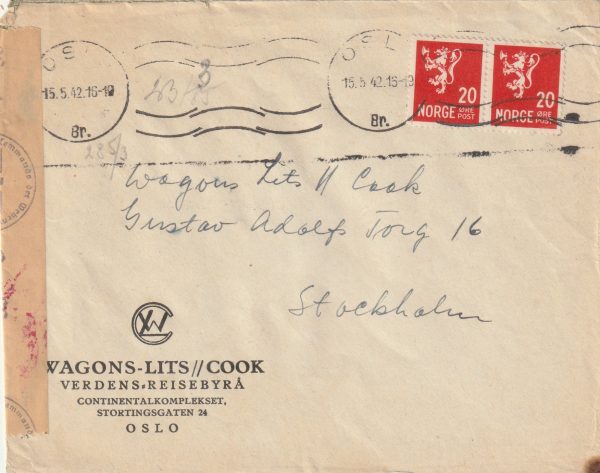 OSL
15.5.42.16-19
Br.
OSL
15.5.42.16-19
Br.
20
ØRE
NORGE POST
20
ØRE
NORGE POST
Wagons Lits // Cook
Gustav Adolfs Torg 16
Stockholm
WAGONS-LITS // COOK
VERDENS-REISEBYRÅ
CONTINENTALKOMPLEKSET,
STORTINGSGATEN 24
OSLO